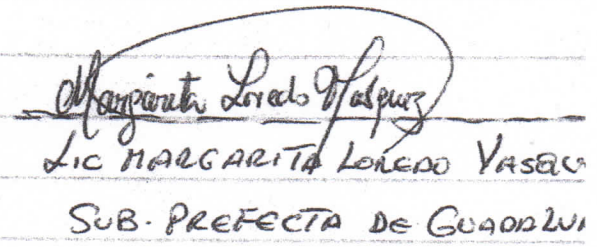 Margarita Loredo Vasquez
LIC MARGARITA LOREDO VASQU
SUB. PREFECTA DE GUADALU